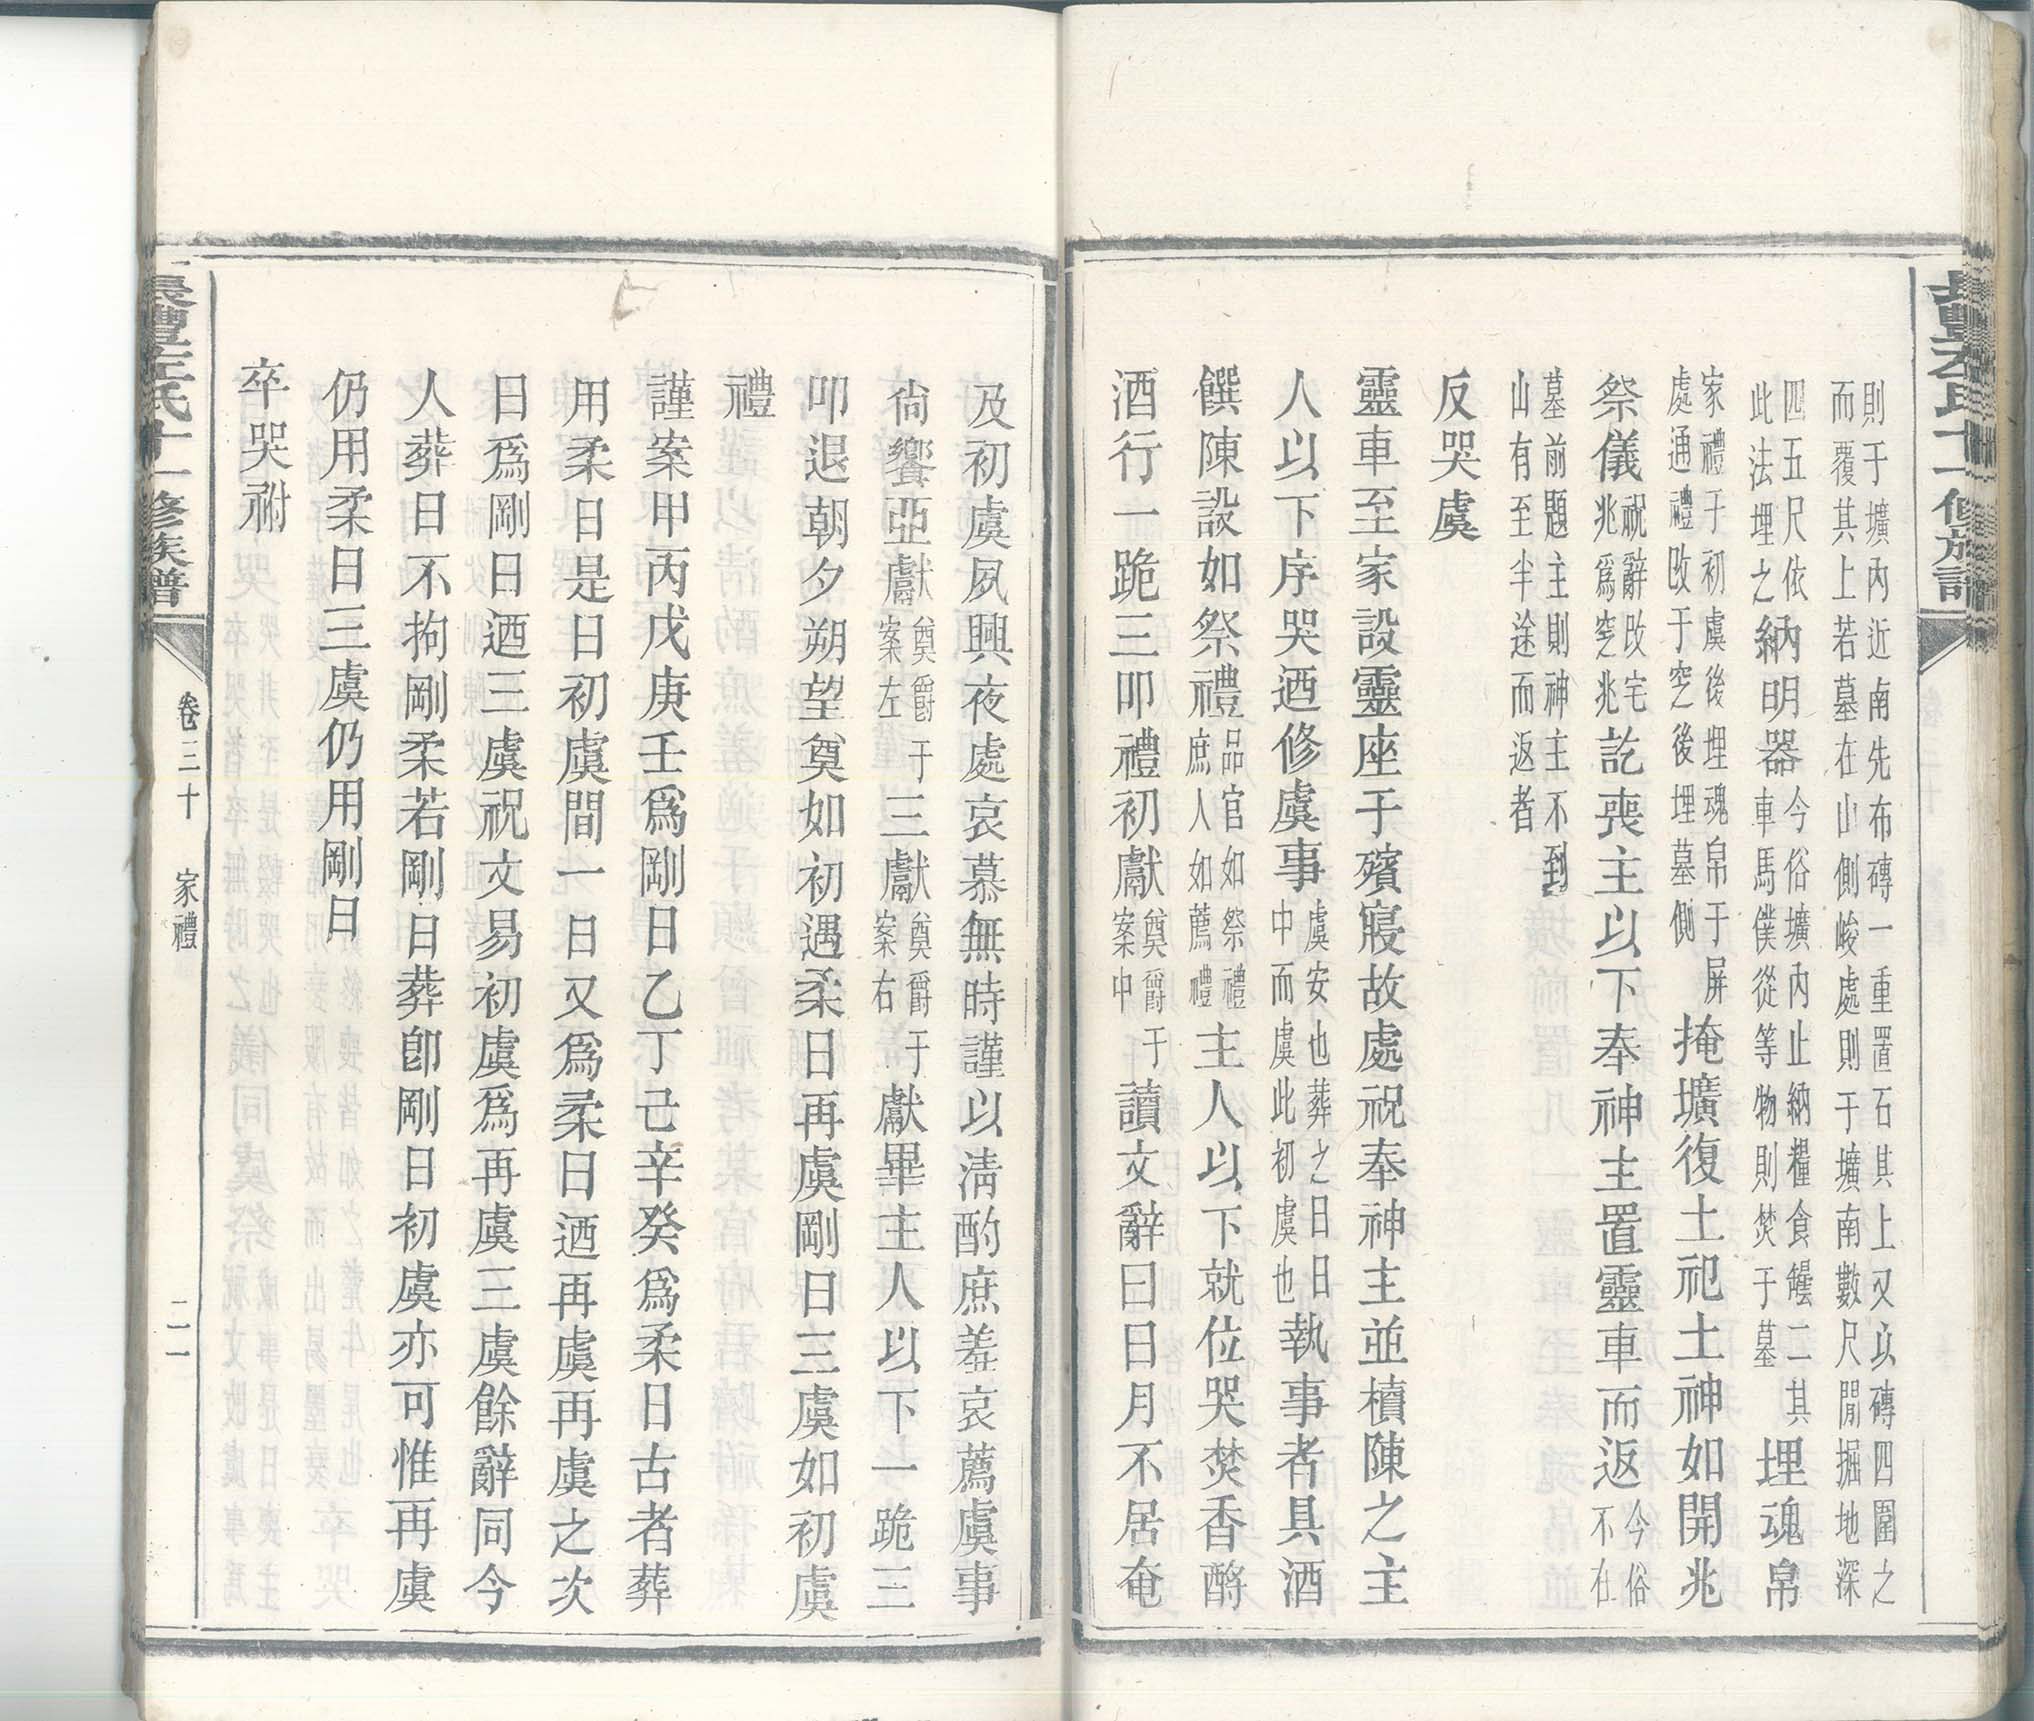 長豐左氏十一修族譜
則于壙內近南先布磚一重置石其上又以磚四圍之
而覆其上若墓在山側峻處則于壙南數尺間掘地深
四五尺依
此法埋之納明器今俗壙內止納糧食罌二其
車馬僕從等物則焚于墓埋魂帛
家禮于初虞後埋魂帛于屏
處通禮改于窆後埋墓側掩壙復土祀土神如開兆
祭儀祝辭改宅
兆爲窆兆訖喪主以下奉神主置靈車而返今俗
不在
墓前題主則神主不到
山有至半途而返者
反哭虞
靈車至家設靈座于殯寢故處祝奉神主並櫝陳之主
人以下序哭迺修虞事虞安也葬之日日
中而虞此初虞也執事者具酒
饌陳設如祭禮品官如祭禮
庶人如薦禮主人以下就位哭焚香酹
酒行一跪三叩禮初獻奠爵于
案中讀文辭曰日月不居奄
及初虞夙興夜處哀慕無時謹以清酌庶羞哀薦虞事
尙饗亞獻奠爵于
案左三獻奠爵于
案右獻畢主人以下一跪三
叩退朝夕朔望奠如初遇柔日再虞剛日三虞如初虞
禮
謹案甲丙戊庚壬爲剛日乙丁己辛癸爲柔日古者葬
用柔日是日初虞間一日又爲柔日迺再虞再虞之次
日爲剛日迺三虞祝文易初虞爲再虞三虞餘辭同今
人葬日不拘剛柔若剛日葬卽剛日初虞亦可惟再虞
仍用柔日三虞仍用剛日
卒哭祔
長豐左氏十一修族譜
卷三十
家禮
二一